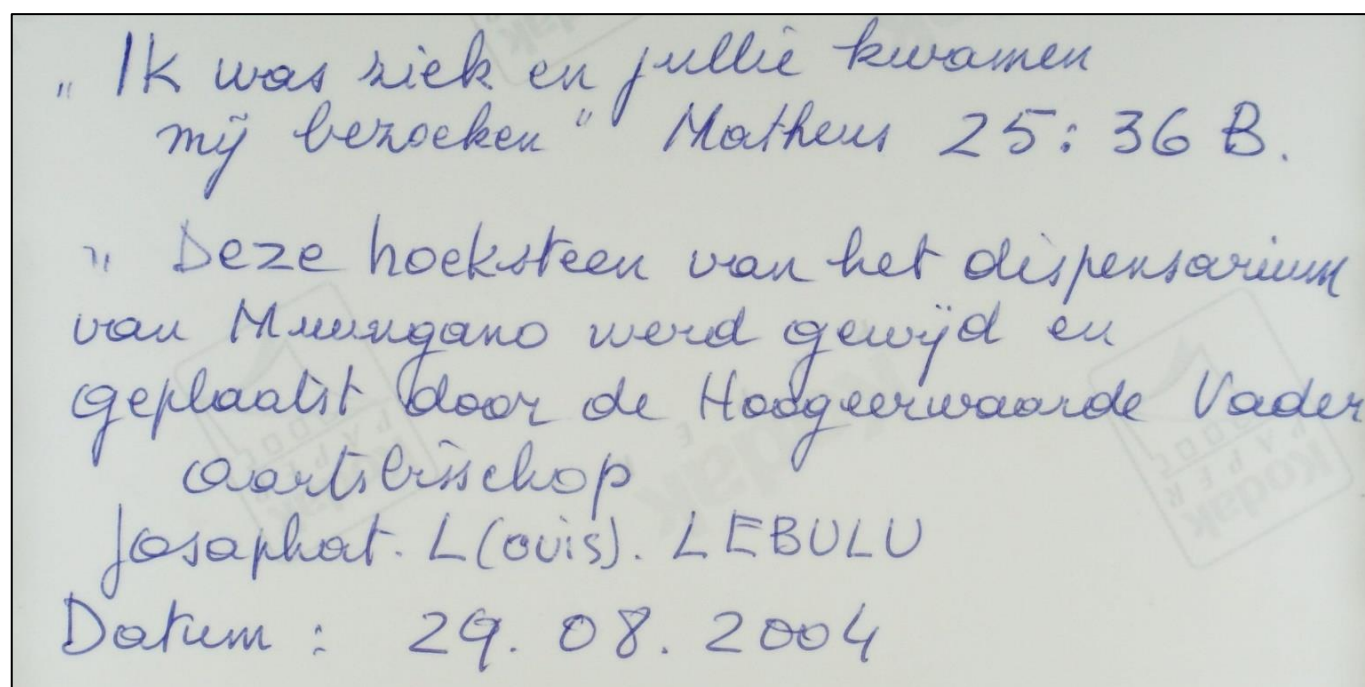 „ Ik was ziek en jullie kwamen
mij bezoeken" Matheus 25: 36 B.
„ Deze hoeksteen van het dispensarium
van Muungano werd gewijd en
geplaatst door de Hoogeerwaarde Vader
aartsbisschop
Josaphat. L(ouis). LEBULU
Datum : 29. 08. 2004